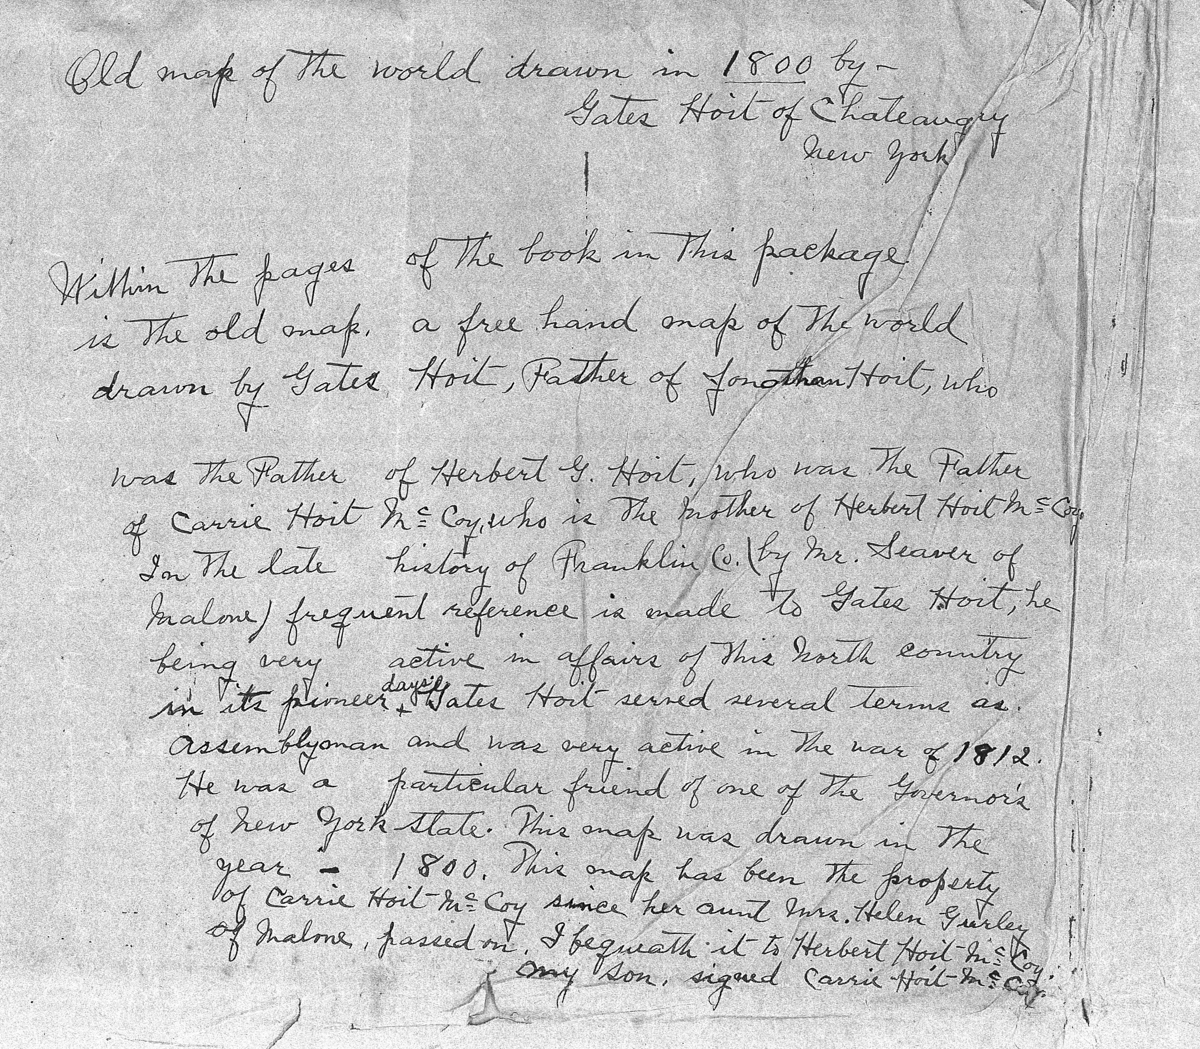 Old map of the world drawn in 1800 by –
Gates Hoit of Chateaugry
New York
Within the pages of the book in this package
is the old map, a free hand map of the world
drawn by Gates Hoit, Father of Jonathan Hoit, who
was the Father of Herbert G. Hoit, who was the Father
of Carrie Hoit Mc Coy, who is the Mother of Herbert Hoit Mc Coy.
In the late history of Franklin Co. (by Mr. Seaver of
Malone) frequent reference is made to Gates Hoit, he
being very active in affairs of this North country
in its pioneer days. + Gates Hoit served several terms as.
Assemblyman and was very active in the war of 1812.
He was a particular friend of one of the Governor's
of New York State. This map was drawn in the
year – 1800. This map has been the property
of Carrie Hoit Mc Coy since her aunt Mrs. Helen Gurley
of Malone, passed on. I bequeath it to Herbert Hoit Mc Coy.
my son. signed Carrie Hoit Mc Coy.